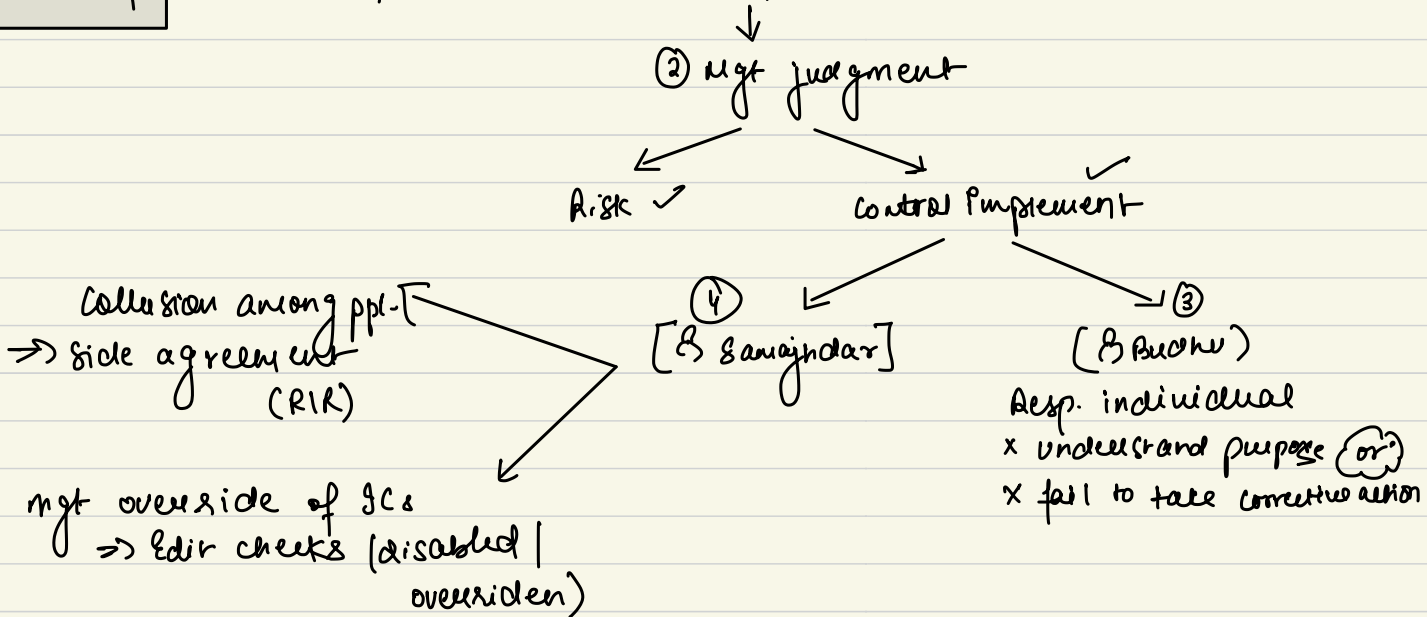 ② Mgt judgment
Risk ✓
Control Implement ✓
Collusion among ppl.
⇒ Side agreement
(RIR)
④
[& Samajhdar]
③
(& Budhu)
Resp. individual
x understand purpose or
x fail to take corrective action
mgt override of ICs
⇒ Edit checks (disabled |
overriden)